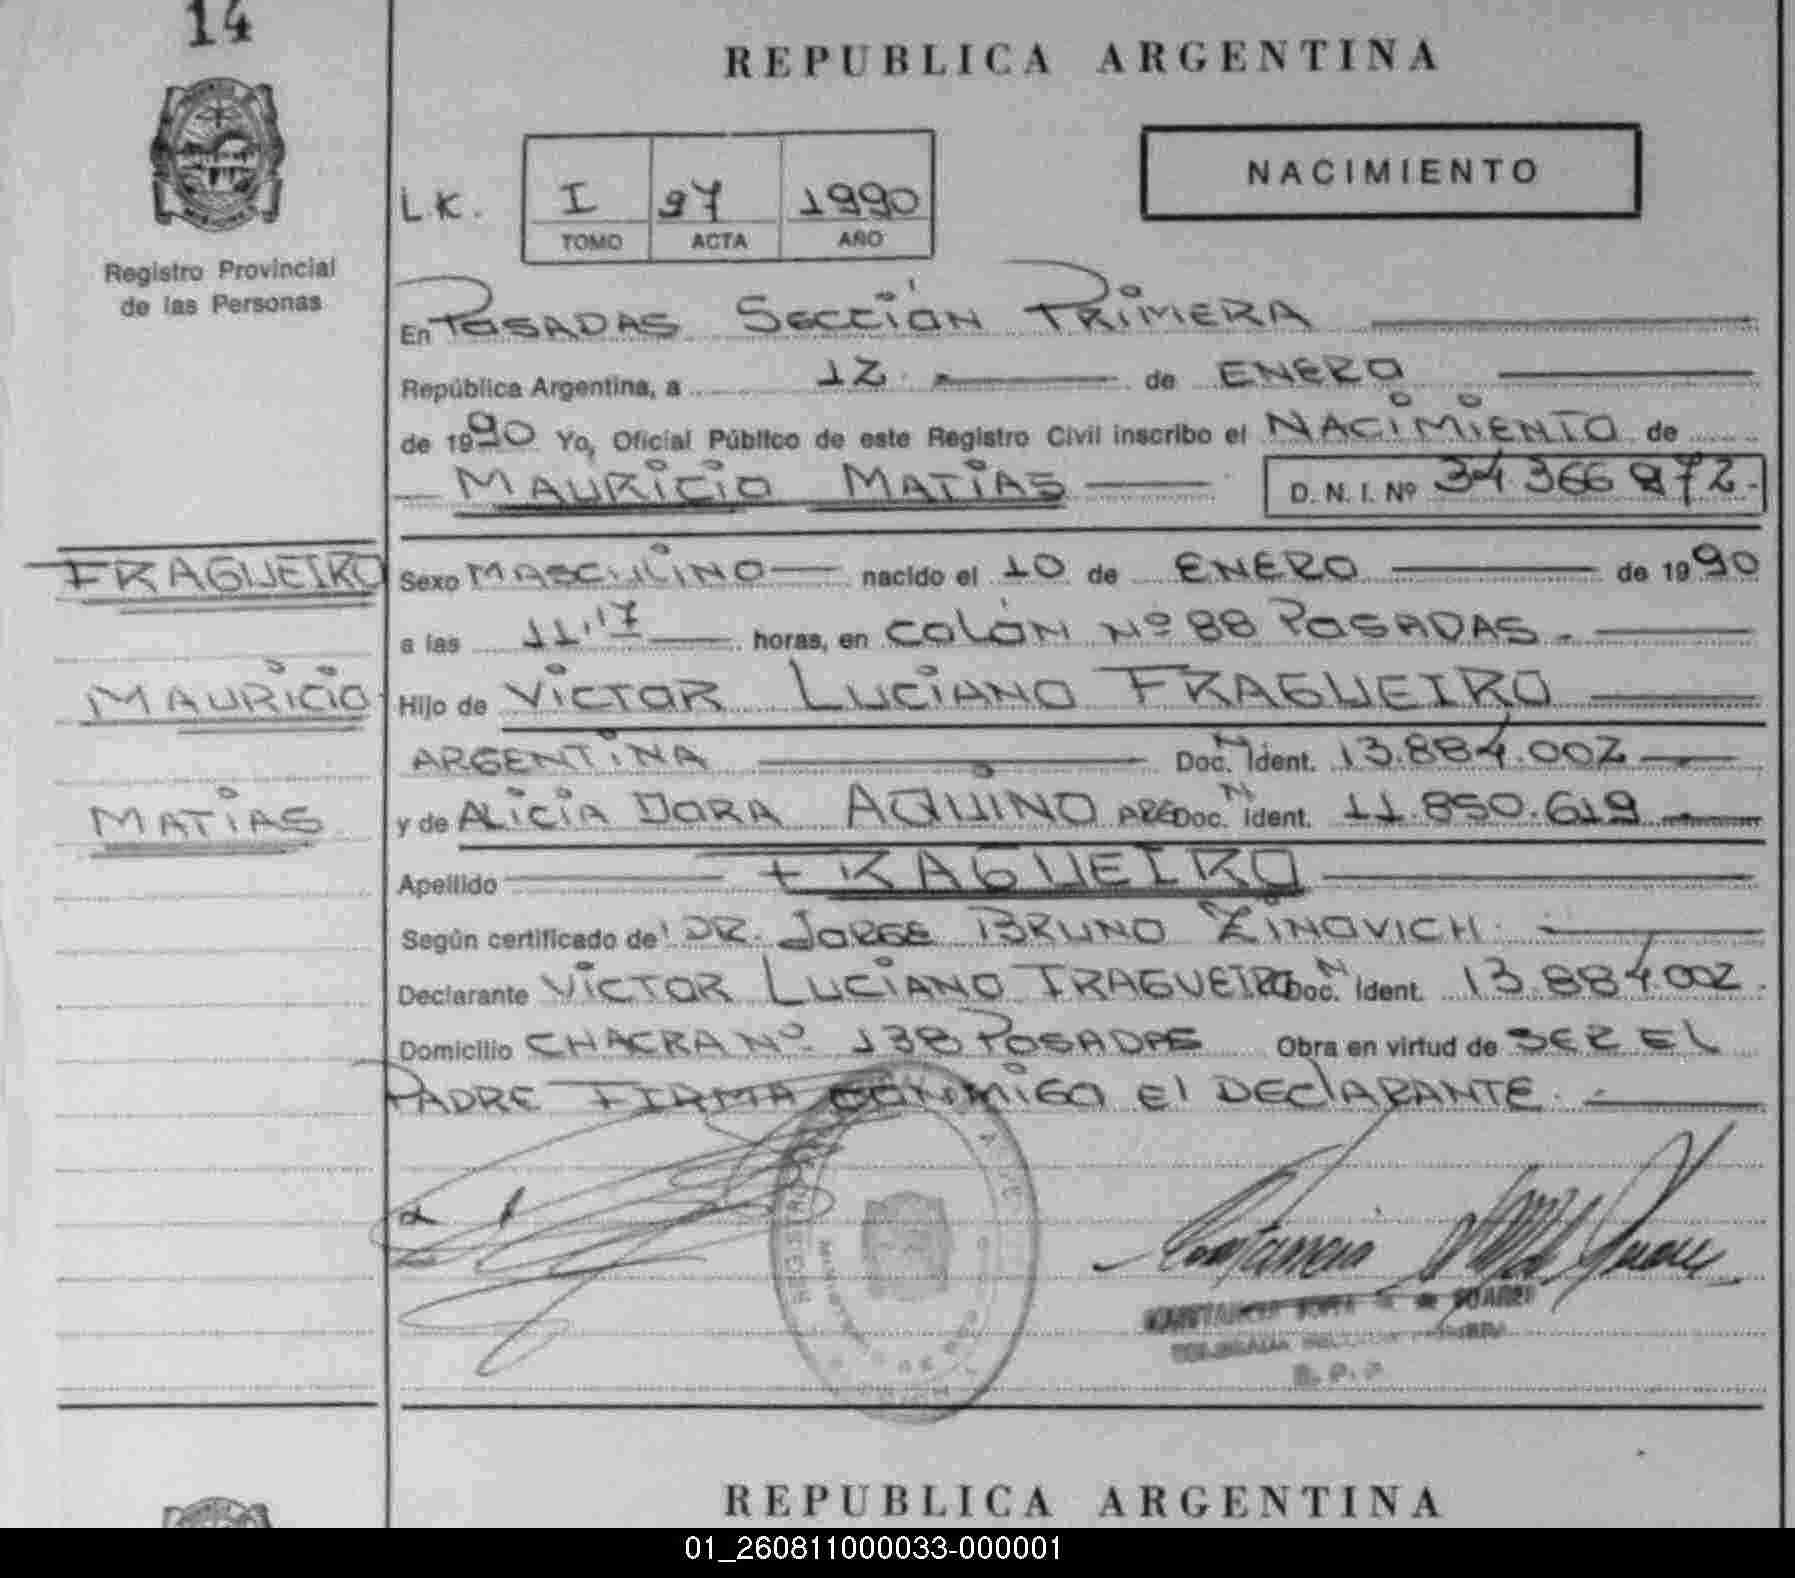 14
REPUBLICA ARGENTINA
NACIMIENTO
L.K. I 97 1990
TOMO ACTA AÑO
Registro Provincial
de las Personas
En POSADAS SECCIÓN PRIMERA
República Argentina, a 12 de ENERO
de 1990 Yo, Oficial Público de este Registro Civil inscribo el NACIMIENTO de
MAURICIO MATIAS D.N.I. Nº 34.366.872.
FRAGUEIRO
MAURICIO
MATIAS
Sexo MASCULINO nacido el 10 de ENERO de 1990
a las 11,17 horas, en COLÓN Nº 88 POSADAS.
Hijo de VICTOR LUCIANO FRAGUEIRO
ARGENTINA Doc. N Ident. 13.884.002
y de ALICIA DORA AQUINO ARG Doc. N Ident. 11.850.619
Apellido FRAGUEIRO
Según certificado de DR. JORGE BRUNO ZINOVICH.
Declarante VICTOR LUCIANO FRAGUEIRO Doc. N Ident. 13.884.002.
Domicilio CHACRA Nº 138 POSADAS Obra en virtud de SER EL
PADRE FIRMA CONMIGO El DEClARANTE.
REPUBLICA ARGENTINA
01_260811000033-000001